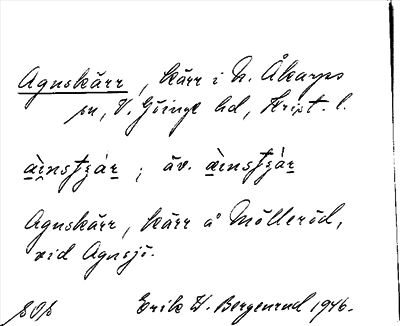 Agnskärr, kärr i N. Åkarps
sn, V. Göinge hd, Krist. l.
; äv.
Agnskärr, kärr å Mölleröd,
vid Agnsjö.
Erik W. Bergenrud 1946.